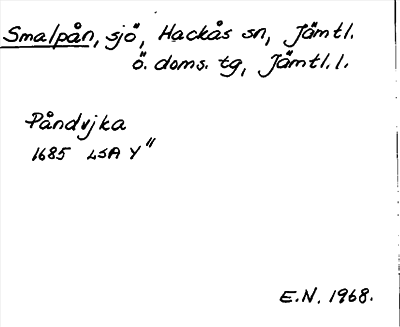 Smalpån, sjö, Hackås sn, Jämtl.
ö. doms. tg, Jämtl. l.
Påndvjka
1685 LSA Y"
E.N. 1968.